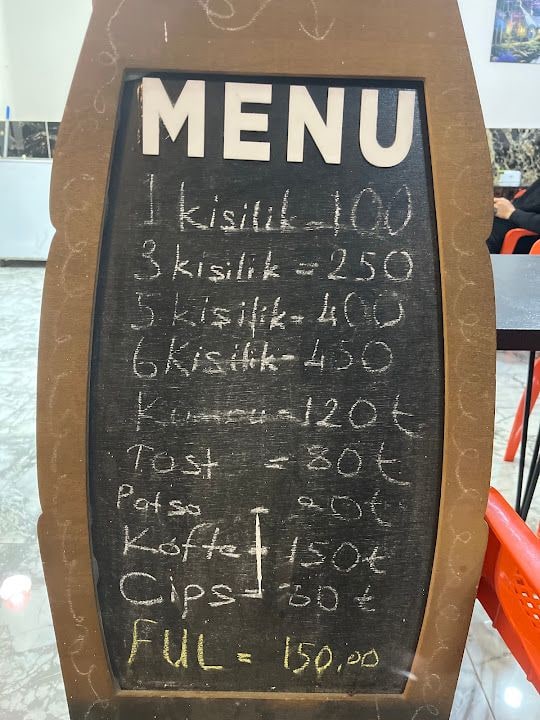 MENU
1 kisilik = 100
3 kisilik = 250
5 kisilik = 400
6 Kisilik = 450
Kumru = 120 t
Tost = 80 t
Patso 90 t
Köfte 150 t
Cips
FUL = 150,00